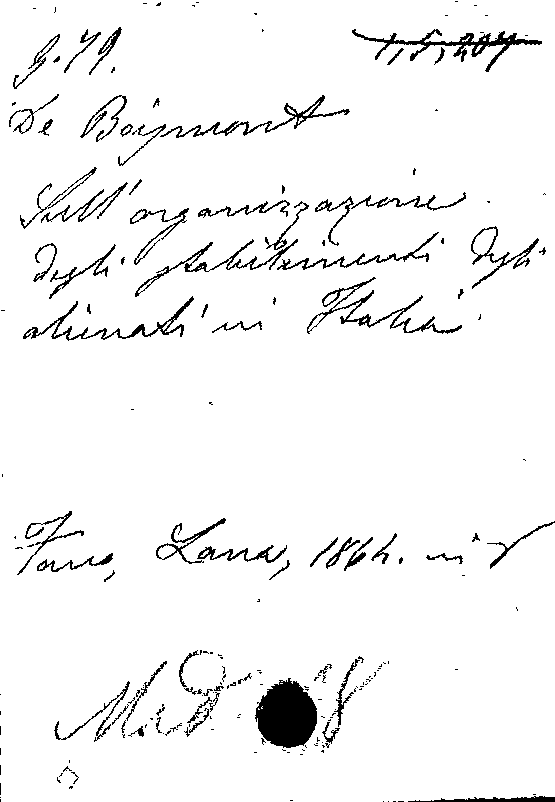 G. 79. 1, 5, 207
De Boismont
Sull' organizzazione
degli stabilimenti degli
alienati in Italia.
Fano, Lana, 1864. in 8
Med